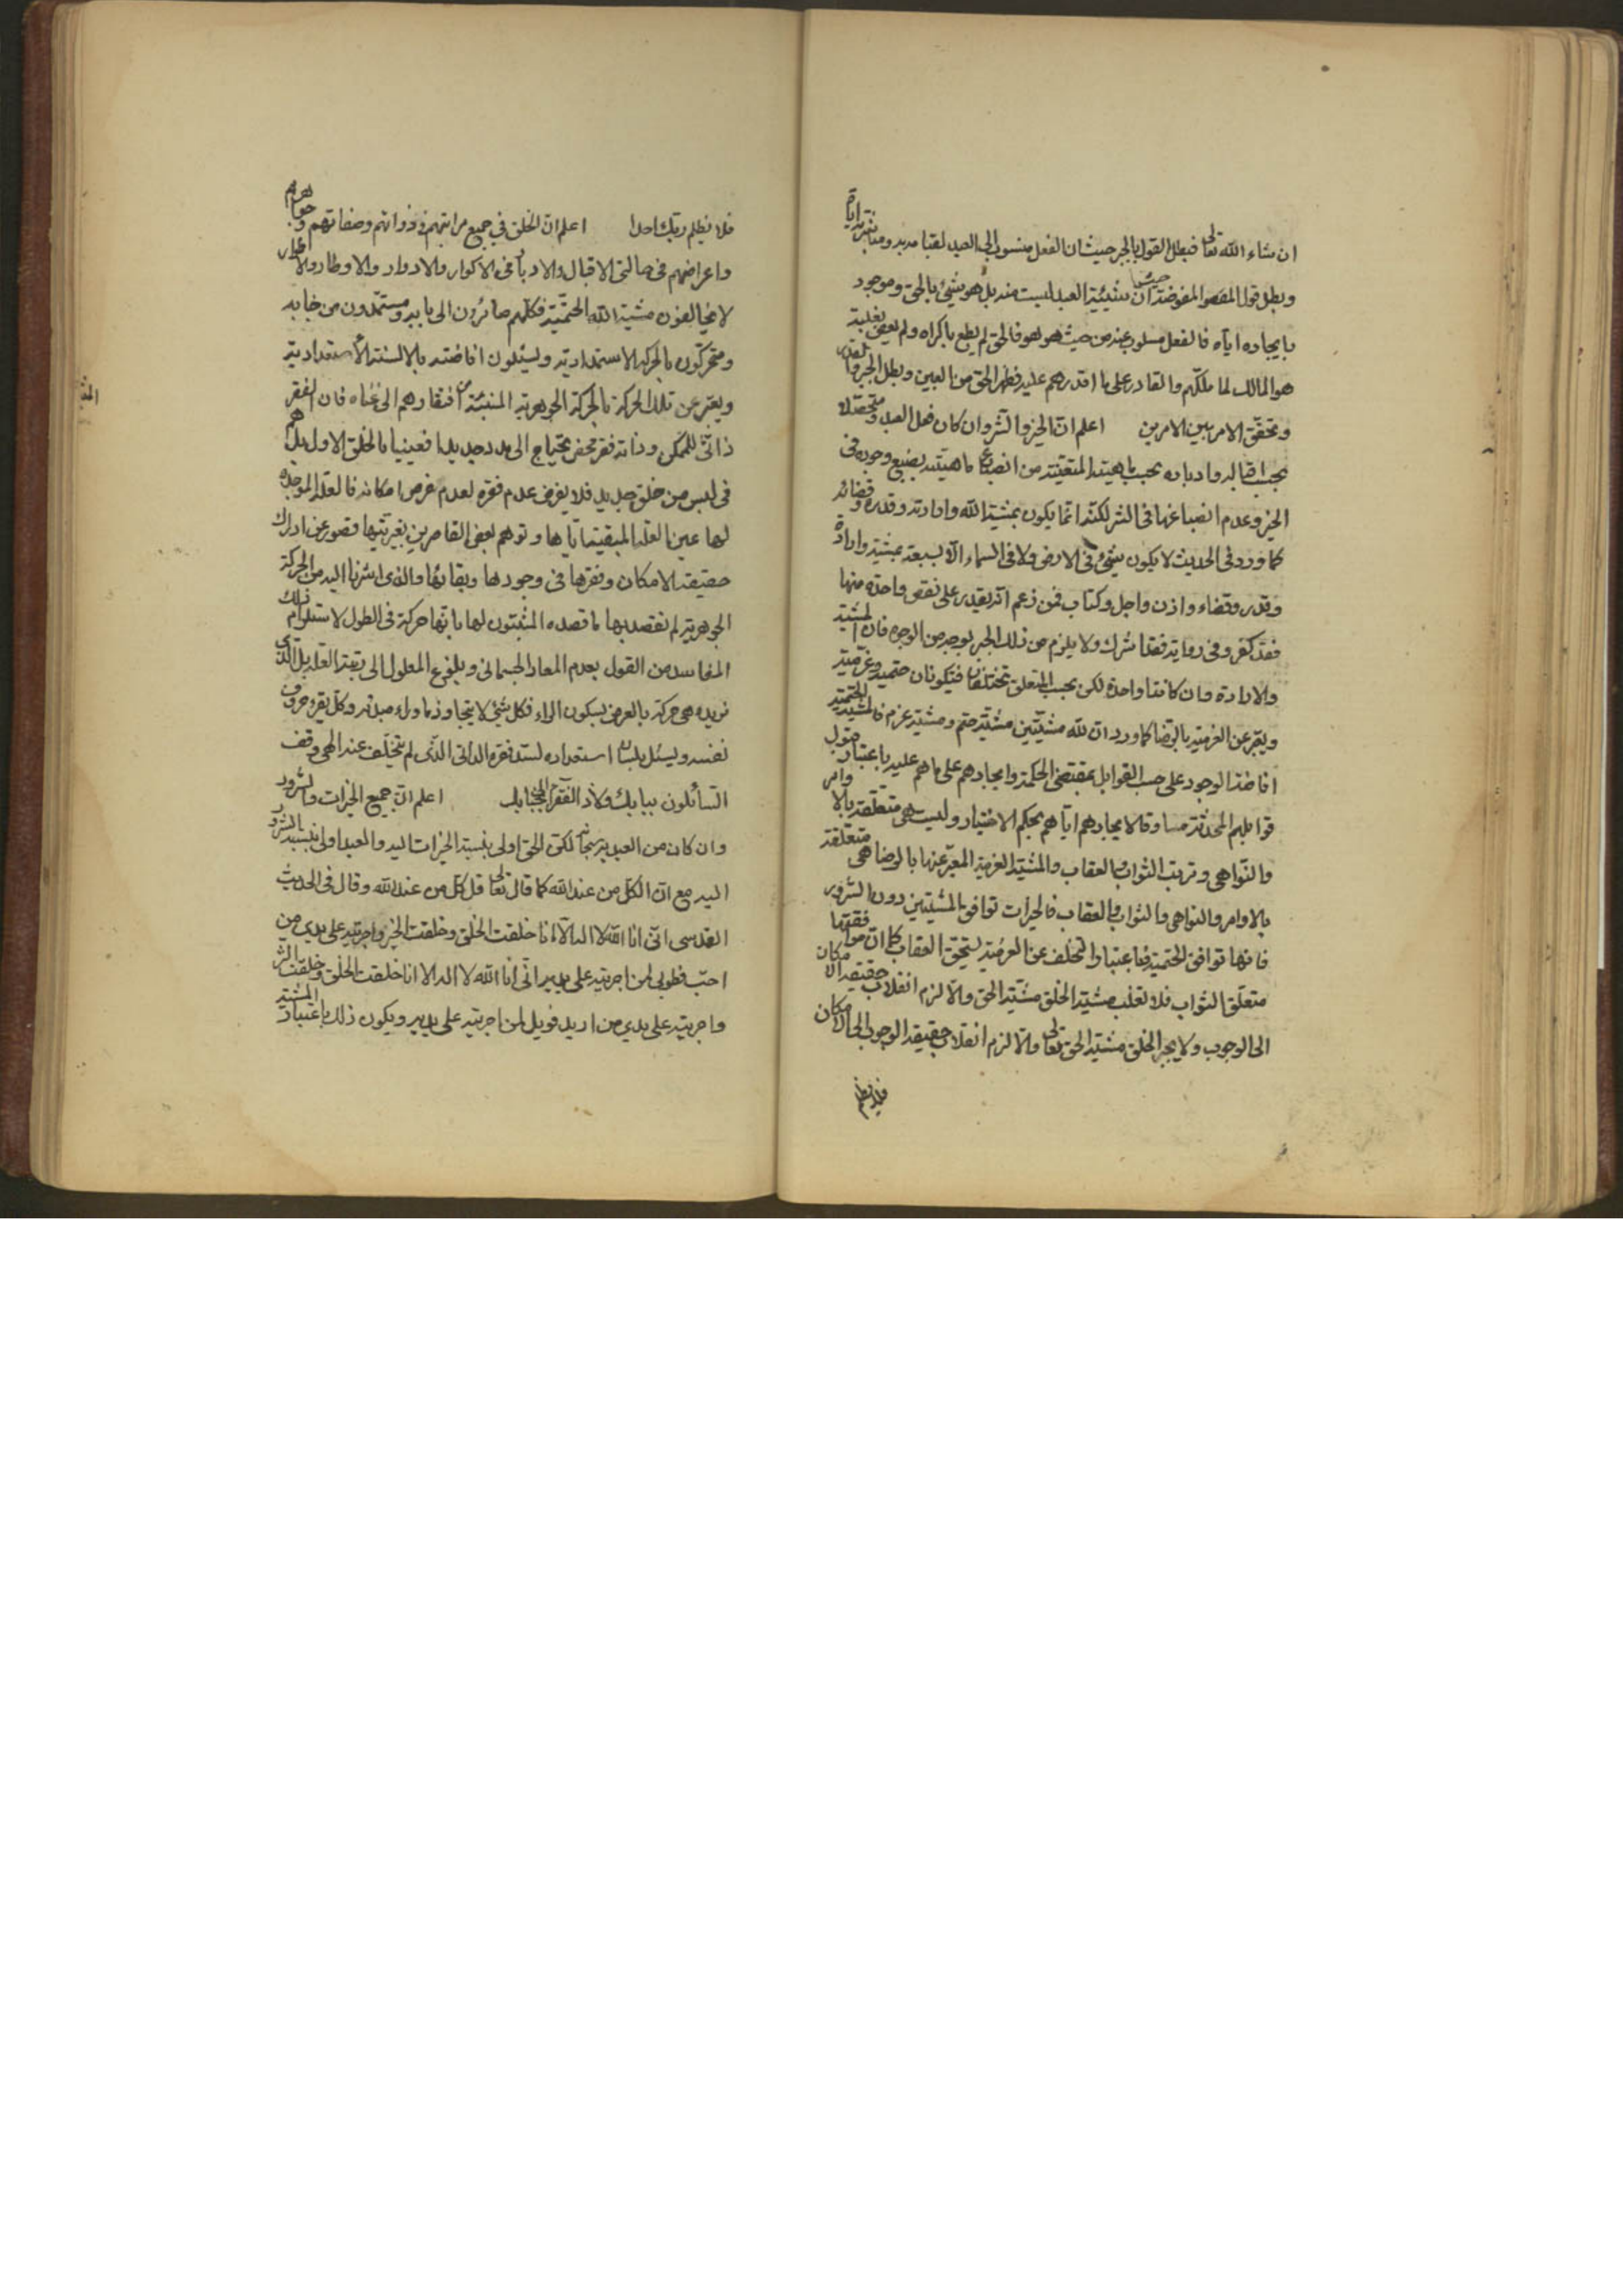 ان شاء الله تعالى فبطل القول بالجبر حيث ان الفعل منسوب الى العبد لقيامه به ومباشرته اياه
وبطل قول المفوضة حيث ان شيئية العبد ليست منه بل هو شيئ بالحق وموجود
بايجاده اياه فالفعل مسلوب عنه من حيث هو هو فالحق لم يطع باكراه ولم يعص بغلبة
هو المالك لما ملكهم والقادر على ما اقدرهم عليه فظهر الحق من البين وبطل الجبر والقدر
وتحقق الامر بين الامرين اعلم ان الخير والشر وان كان فعل العبد ومتحصلا
بحسب اقباله وادباره بحسب ماهيته المتعينة من انصباغ ماهيته بصبغ وجوده في
الخير وعدم انصباغها في الشر لكنه انما يكون بمشية الله وارادته وقدره وقضائه
كما ورد في الحديث لا يكون شيئ في الارض ولا في السماء الا بسبعة بمشية وارادة
وقدر وقضاء واذن واجل وكتاب فمن زعم انه يقدر على نقص واحدة منها
فقد كفر وفي رواية فقد اشرك ولا يلزم من ذلك الجبر بوجه من الوجوه فان المشية
والارادة وان كانتا واحدة لكن بحسب المتعلق تختلفان فتكونان حتمية وعزمية
ويعبر عن العزمية بالرضا كما ورد ان لله مشيتين مشية حتم ومشية عزم فالمشية الحتمية
افاضة الوجود على حسب القوابل بمقتضى الحكمة وايجادهم على ما هم عليه باعتبار قبول
قوابلهم المحدثة مساوقا لايجادهم اياهم بحكم الاختيار وليست هي متعلقة بالاوامر
والنواهي وترتب الثواب والعقاب والمشية العزمية المعبر عنها بالرضا هي متعلقة
بالاوامر والنواهي والثواب والعقاب فالخيرات توافق المشيتين دون الشرور
فانها توافق الحتمية فباعتبار التخلف عن العزمية يستحق العقاب كما ان موافقتها
متعلق الثواب فلا تغلب مشية الخلق مشية الحق والا لزم انقلاب حقيقة الامكان
الى الوجوب ولا يجبر الخلق مشية الحق تعالى والا لزم انقلاب حقيقة الوجوب الى الامكان
فلا يظلم
فلا يظلم ربك احدا اعلم ان الخلق في جميع مراتبهم وذواتهم وصفاتهم وجواهرهم
واعراضهم في حالتي الاقبال والادبار في الاكوار والادوار والاوطار والاطوار
لا يخالفون مشية الله الحتمية فكلهم صائرون الى بابه ومستمدون من جنابه
ومتحركون بالحركة الاستمدادية ويسئلون افاضته بالالسنة الاستعدادية
ويعبر عن تلك الحركة بالحركة الجوهرية المنبئة عن افتقارهم الى غناه فان الفقر
ذاتي للممكن وذاته فقر محض يحتاج الى مدد جديد افعيينا بالخلق الاول بل هم
في لبس من خلق جديد فلا يفرض عدم فقره لعدم فرض امكانه فالعلة الموجدة
لها عين العلة المبقية اياها وتوهم بعض القاصرين بغيريتها قصور عن ادراك
حقيقة الامكان وفقرها في وجودها وبقائها والذي اشرنا اليه من الحركة
الجوهرية لم نقصد بها ما قصده المثبتون لها بانها حركة في الطول لاستلزام ذلك
المفاسد من القول بعدم المعاد الجسماني وبلوغ المعلول الى رتبة العلة بل الذي
نريده هي حركة بالعرض فكل شيئ لا يتجاوز ما وراء مبدئه وكل يقرء حروف
نفسه ويسئل بلسان استعداده لسد فقره الذاتي الذي لم يتخلف عنه الهي وقف
السائلون ببابك ولاذ الفقراء بجنابك اعلم ان جميع الخيرات والشرور
وان كان من العبد لكن الحق اولى بنسبة الخيرات اليه والعبد اولى بنسبة الشرور
اليه مع ان الكل من عند الله كما قال تعالى قل كل من عند الله وقال في الحديث
القدسي اني انا الله لا اله الا انا خلقت الخلق وخلقت الخير واجريته على يدي من
احب فطوبى لمن اجريته على يديه اني انا الله لا اله الا انا خلقت الخلق وخلقت الشر
واجريته على يدي من اريد فويل لمن اجريته على يديه ويكون ذلك باعتبار المشية